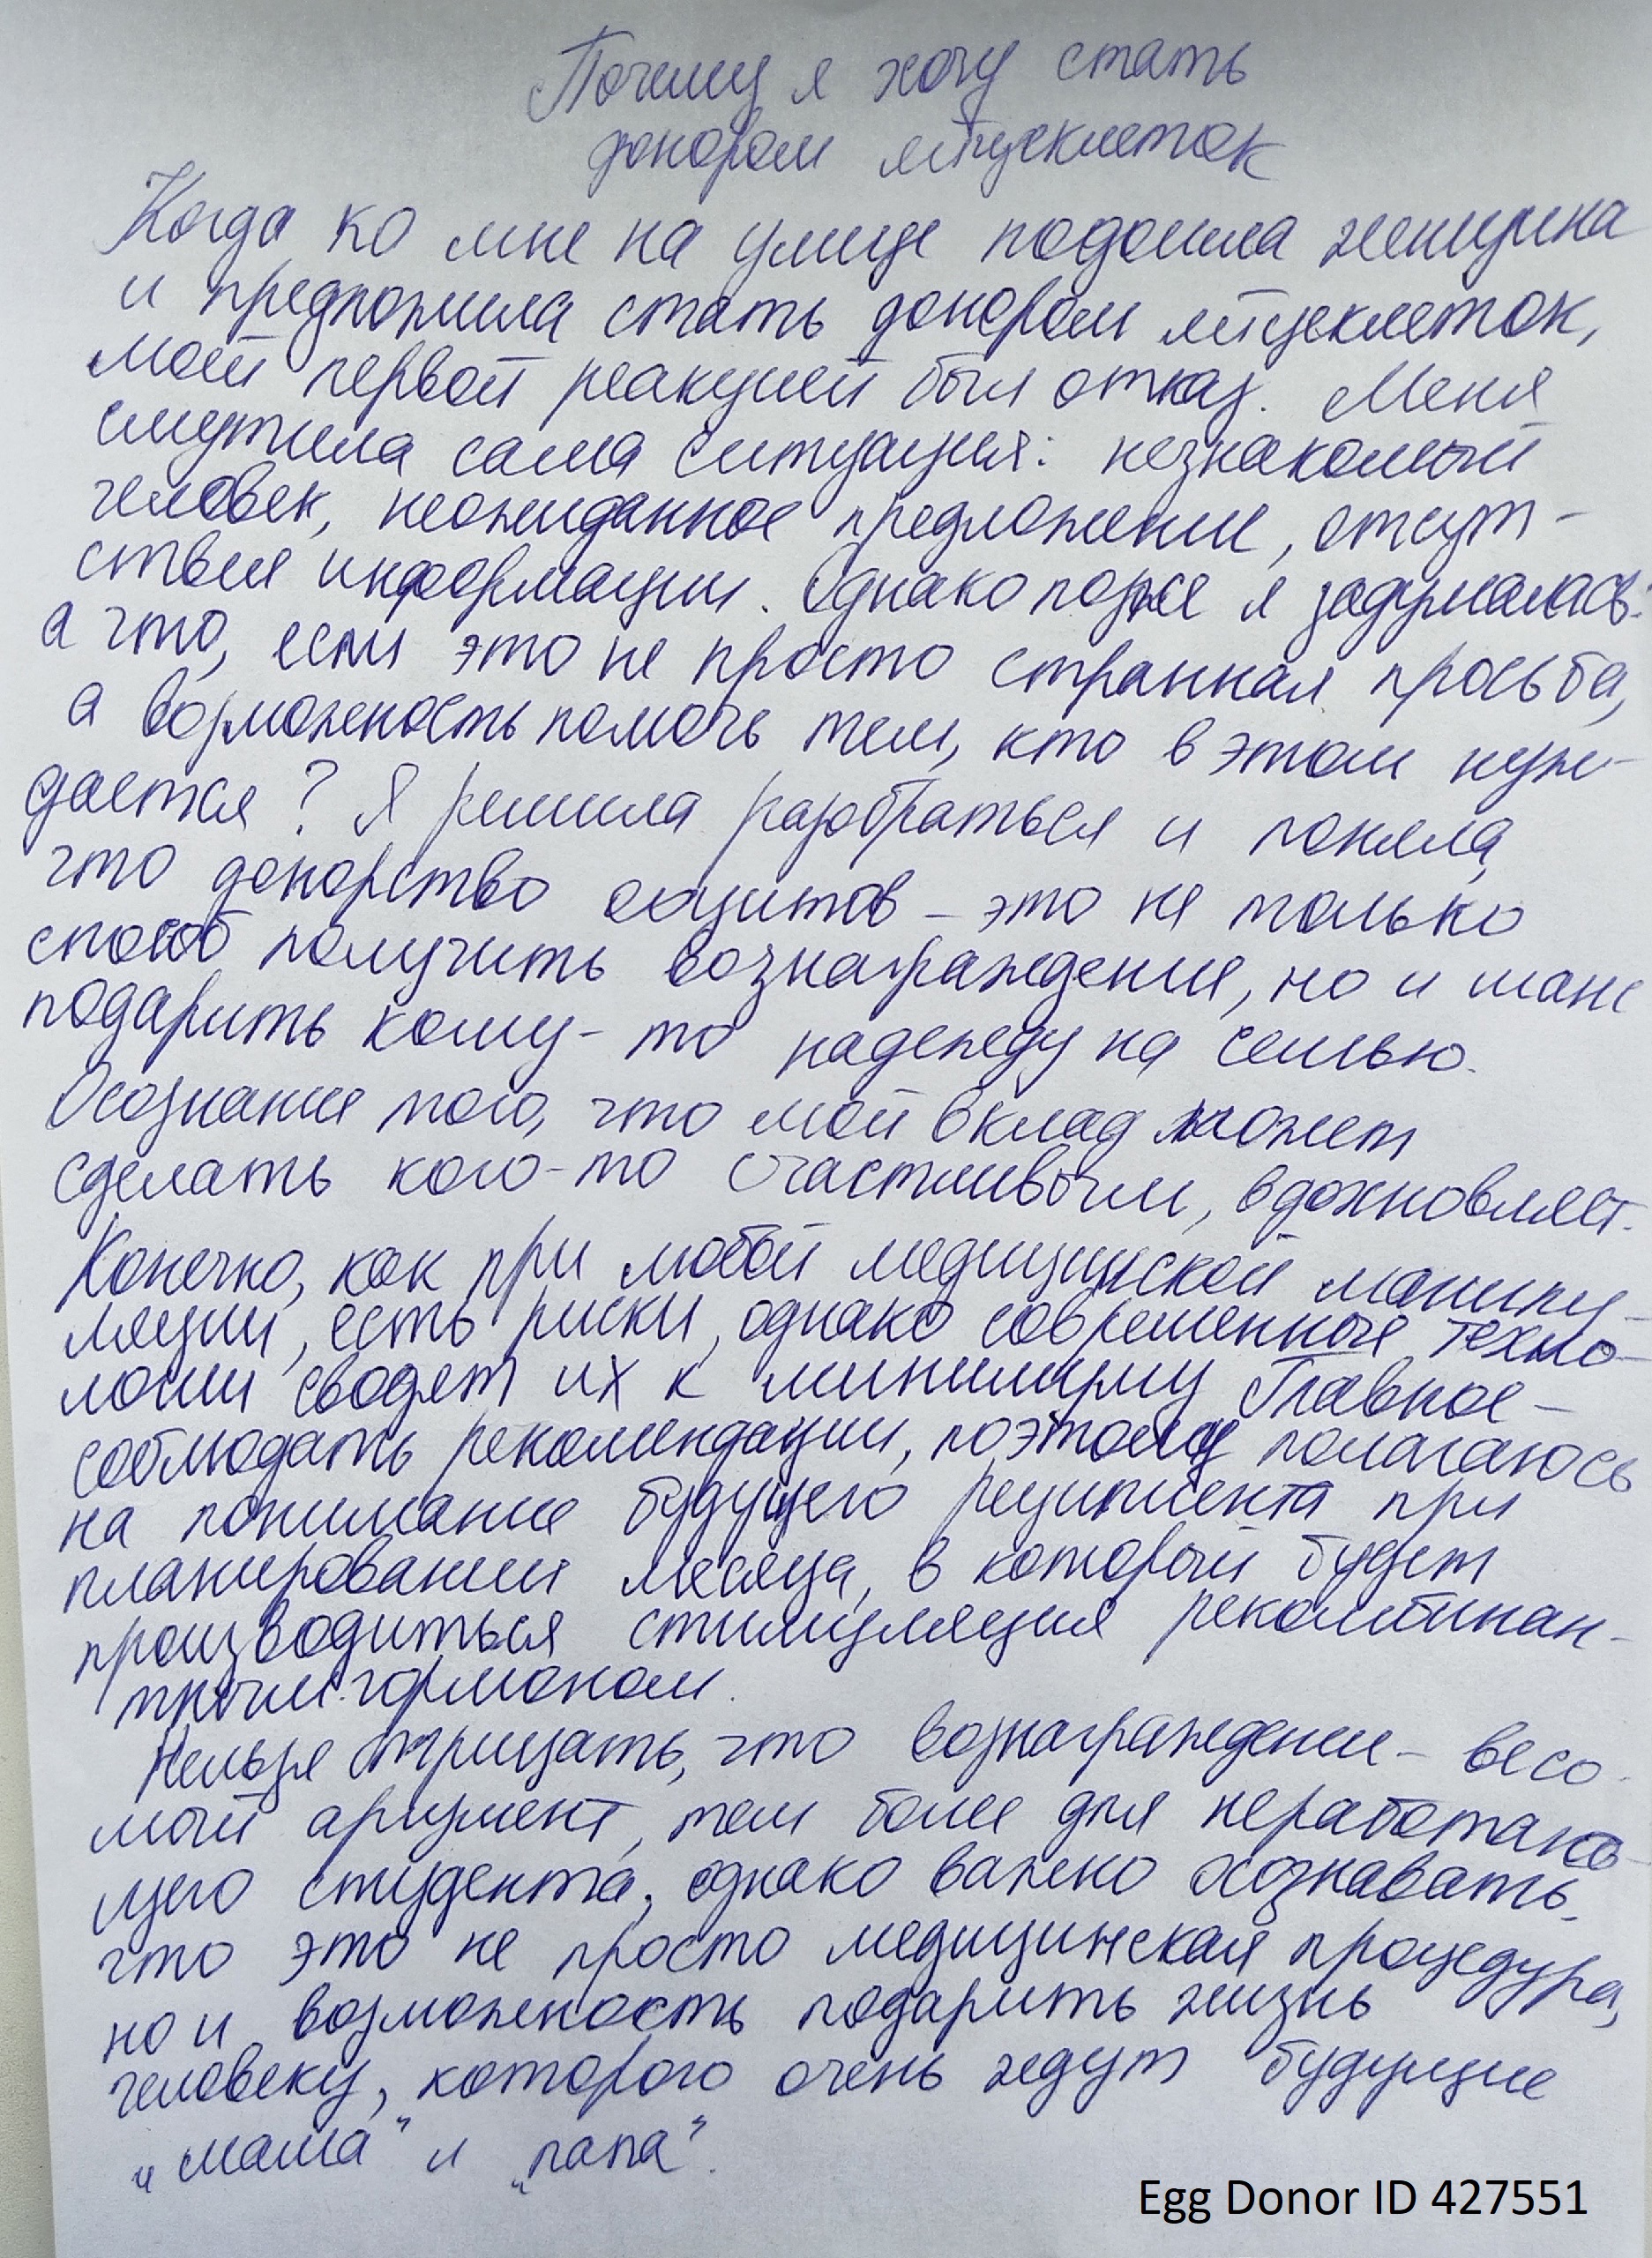 Почему я хочу стать
донором яйцеклеток
Когда ко мне на улице подошла женщина
и предложила стать донором яйцеклеток,
моей первой реакцией был отказ. Меня
смутила сама ситуация: незнакомый
человек, неожиданное предложение, отсут-
ствие информации. Однако позже я задумалась:
а что, если это не просто странная просьба,
а возможность помочь тем, кто в этом нуж-
дается? Я решила разобраться и поняла,
что донорство ооцитов - это не только
способ получить вознаграждение, но и шанс
подарить кому-то надежду на семью.
Осознание того, что мой вклад может
сделать кого-то счастливым, вдохновляет.
Конечно, как при любой медицинской манипу-
ляции, есть риски, однако современные техно-
логии сводят их к минимуму. Главное -
соблюдать рекомендации, поэтому полагаюсь
на понимание будущего реципиента при
планировании месяца, в который будет
производиться стимуляция рекомбинан-
тным гормоном.
Нельзя отрицать, что вознаграждение - весо-
мый аргумент, тем более для неработаю-
щего студента, однако важно осознавать,
что это не просто медицинская процедура,
но и возможность подарить жизнь
человеку, которого очень ждут будущие
„мама" и „папа".
Egg Donor ID 427551